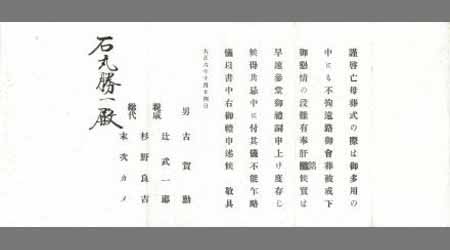 謹啓亡母葬式の際は御多用の
中にも不拘遠路御會葬被成下
御懇情の段難有奉肝銘候實は
早速參堂御禮詞申上け度存し
候得共忌中に付其儀不能乍略
儀以書中右御禮申述候 敬具
大正六年十月十四日
男 古賀勤
親戚 辻武一郎
總代 杉野良吉
末次カメ
石丸勝一殿